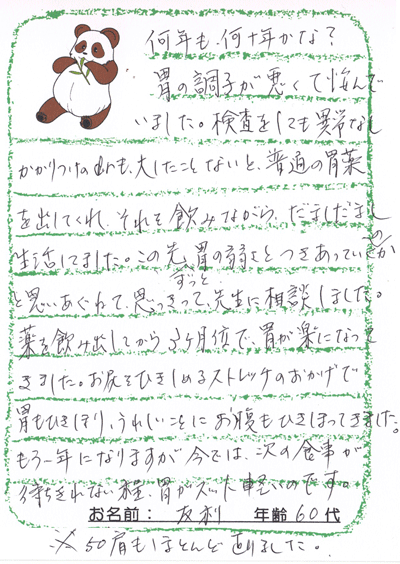 何年も、何十年かな?
胃の調子が悪くて悩んで
いました。検査をしても異常なし
かかりつけのDr.も、大したことないと、普通の胃薬
を出してくれ、それを飲みながら、だましだまし
生活してました。この先、ずっと胃の弱さとつきあっていくのか
と思いあぐねて、思いきって、先生に相談しました。
薬を飲み出してから3ヶ月位で、胃が楽になって
きました。お尻をひきしめるストレッチのおかげで
胃もひきしまり、うれしいことにお腹もひきしまってきました。
もう一年になりますが今では、次の食事が
待ちきれない程、胃がズット軽いのです。
お名前: 友利 年齢60代
※50肩もほとんど直りました。